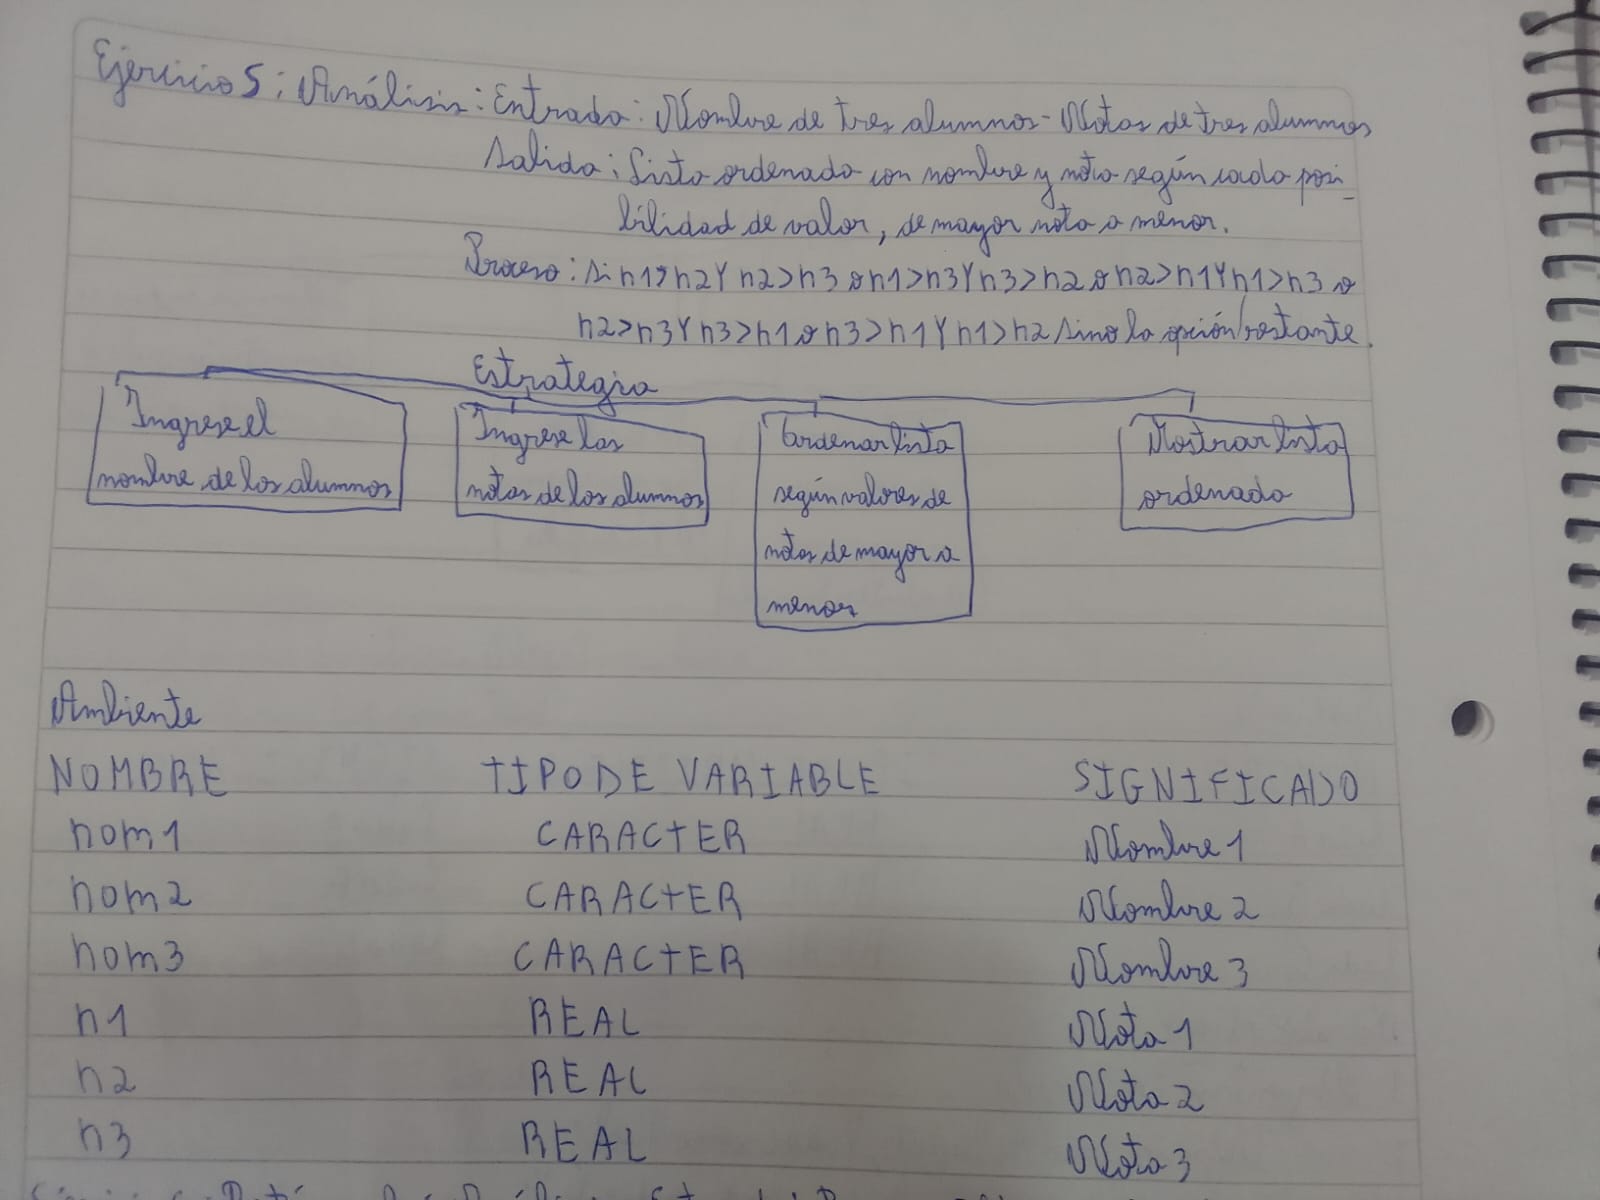 Ejercicio 5: Análisis: Entrada: Nombre de tres alumnos - Notas de tres alumnos
Salida: Lista ordenada con nombre y nota según cada posi-
bilidad de valor, de mayor nota a menor.
Proceso: Si n1>n2 Y n2>n3 o n1>n3 Y n3>n2 o n2>n1 Y n1>n3 o
n2>n3 Y n3>n1 o n3>n1 Y n1>n2 sino la opción restante.
Estrategia
Ingrese el
nombre de los alumnos
Ingrese las
notas de los alumnos
Ordenar lista
según valores de
notas de mayor a
menor
Mostrar lista
ordenada
Ambiente
NOMBRE TIPO DE VARIABLE SIGNIFICADO
nom1 CARACTER Nombre 1
nom2 CARACTER Nombre 2
nom3 CARACTER Nombre 3
n1 REAL Nota 1
n2 REAL Nota 2
n3 REAL Nota 3